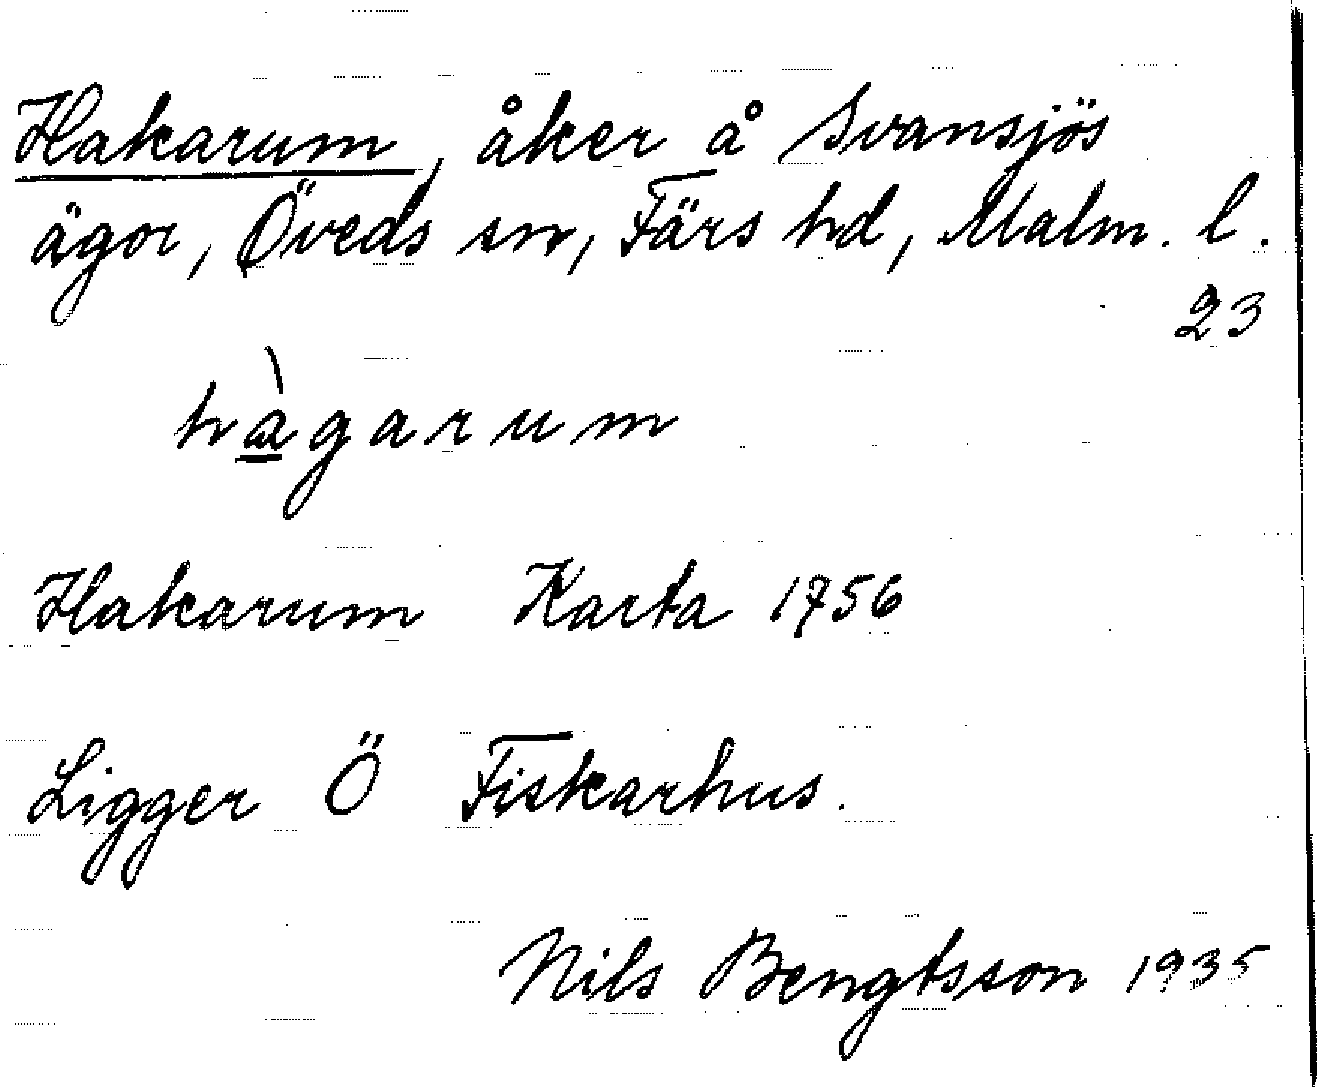 Hakarum, åker å Svansjös
ägor, Öveds sn, Färs hd, Malm. l.
23
hàgarum
Hakarum Karta 1756
Ligger Ö Fiskarhus.
Nils Bengtsson 1935